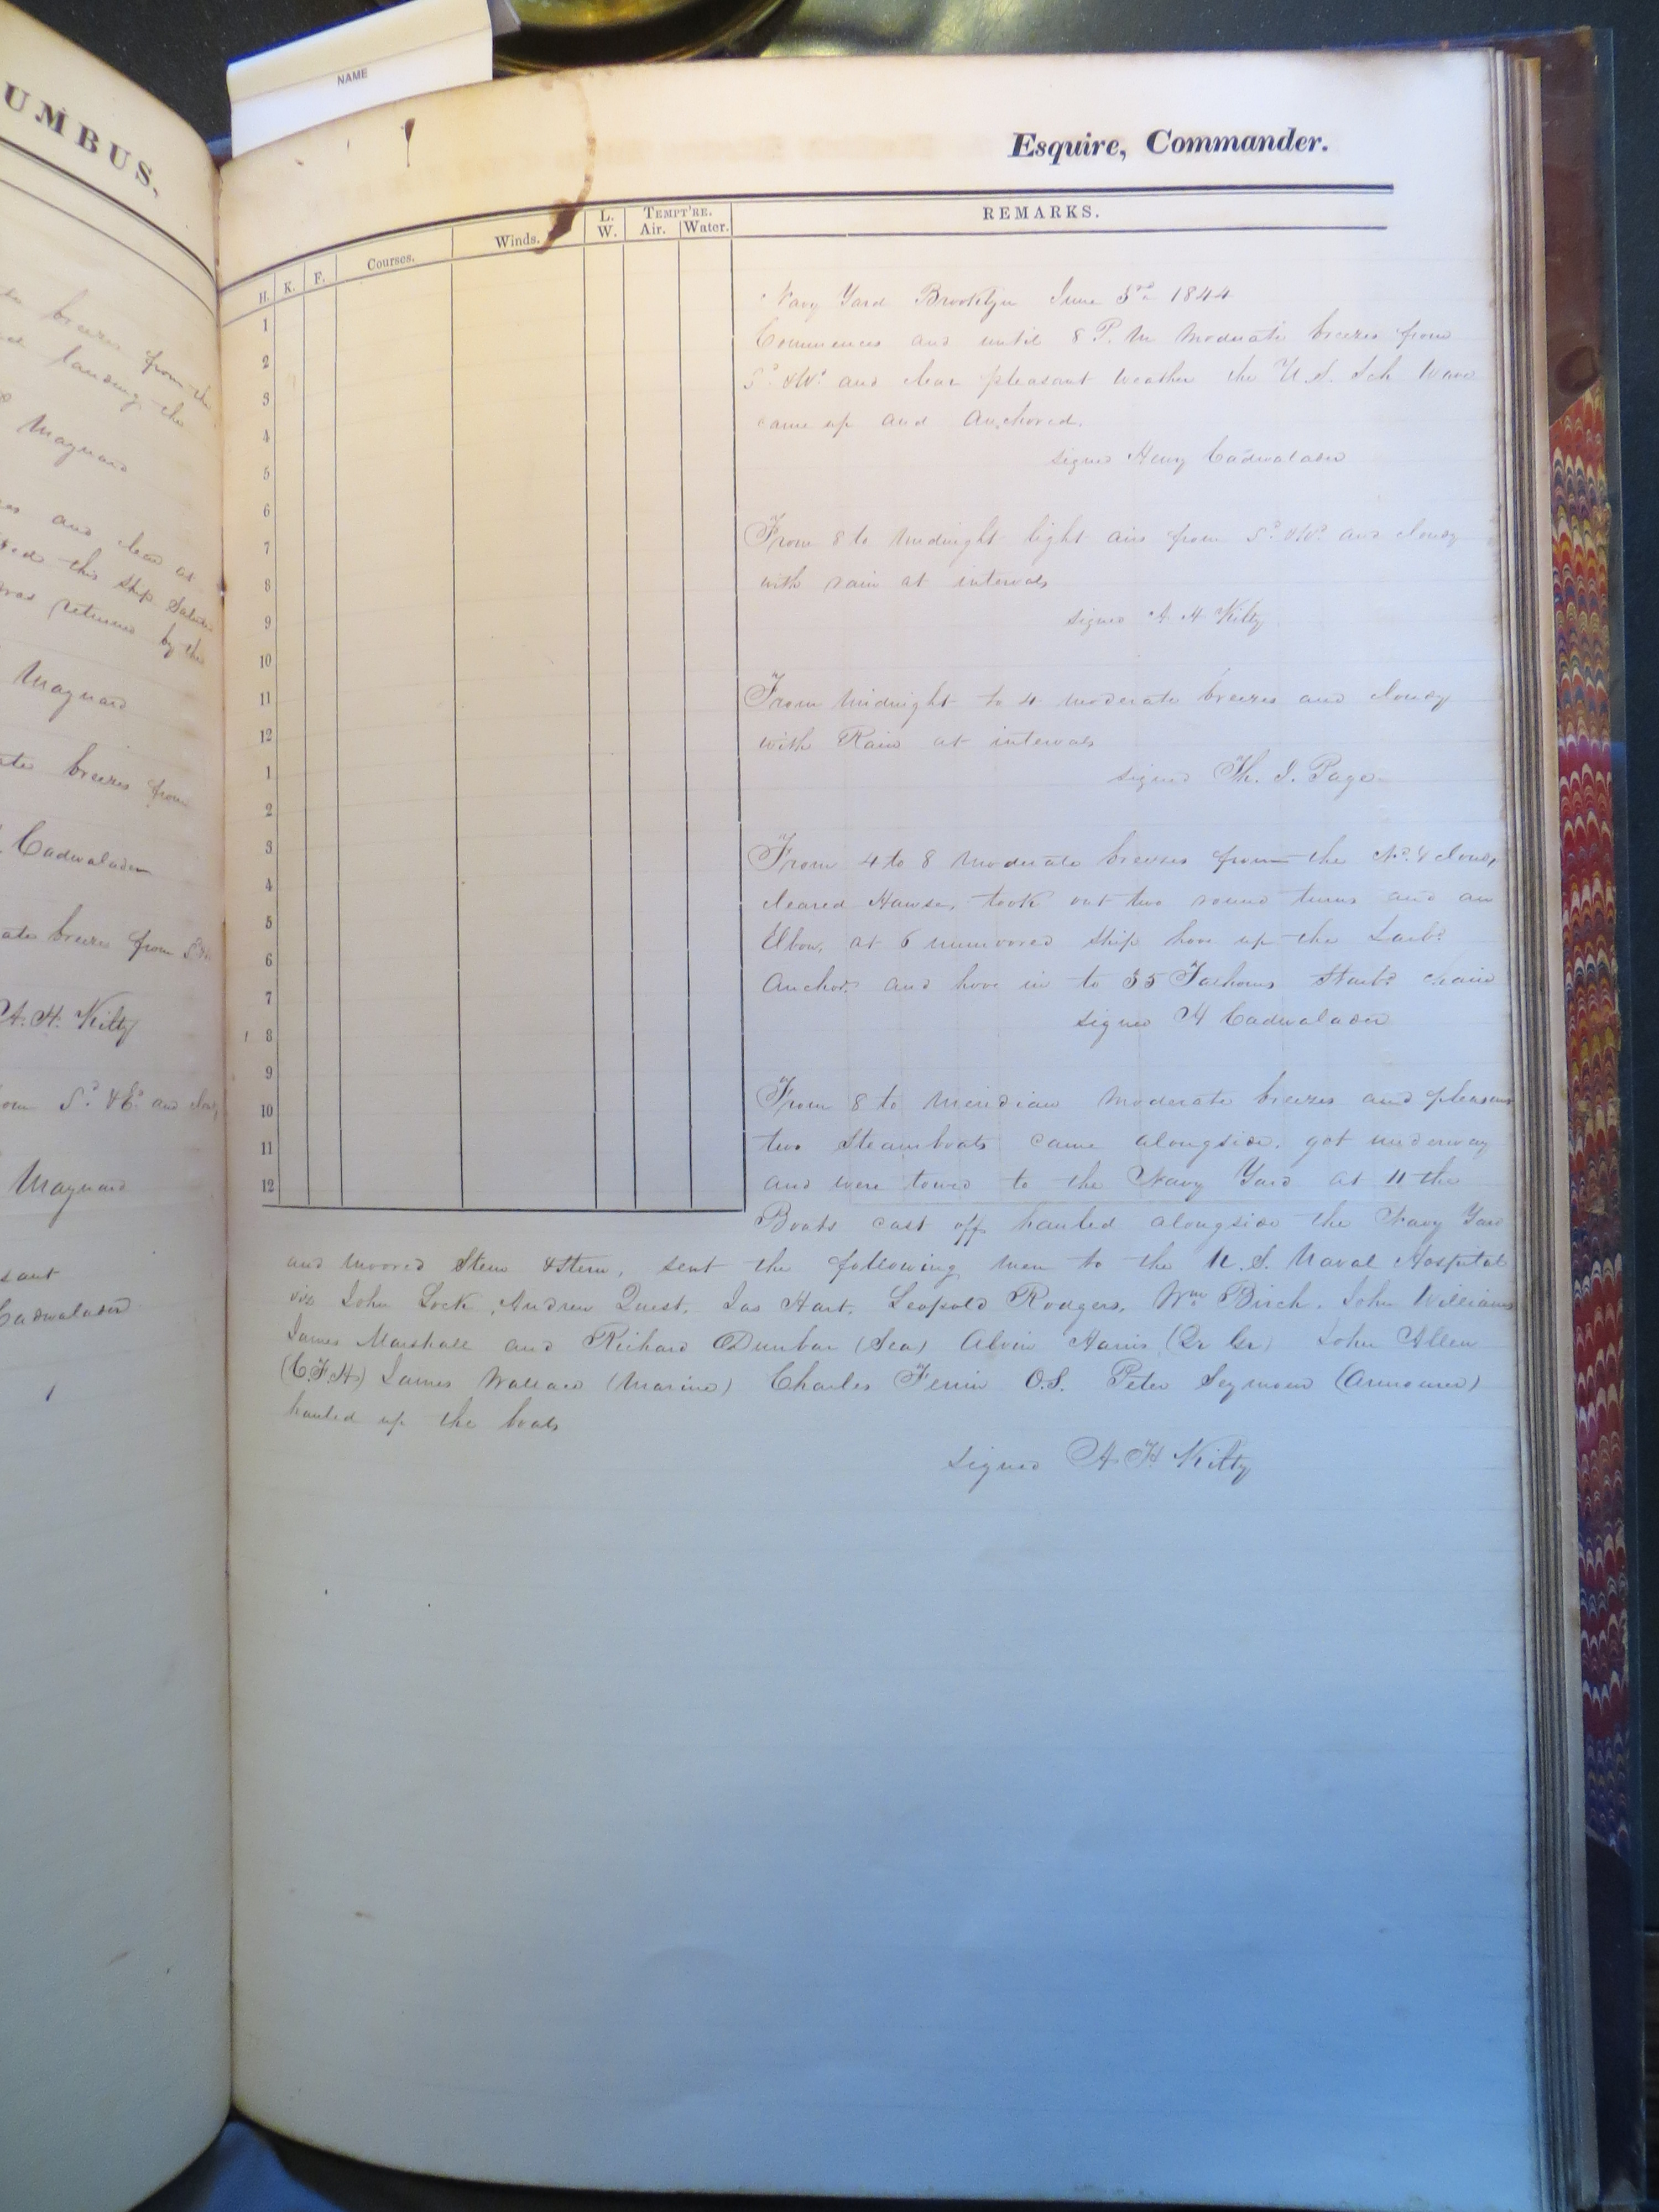 NAME
UMBUS,
breezes from the
landing the
Maynard
and clear at
this ship Salute
was returned by the
Maynard
breezes from
Cadwalader
ate breezes from
A. H. Kilty
om Sd. & Ed. and cloudy
Maynard
sant
Cadwalader
Esquire, Commander.
H. K. F. Courses. Winds. L. W. TEMPT'RE. Air. Water. REMARKS.
1
2
3
4
5
6
7
8
9
10
11
12
1
2
3
4
5
6
7
8
9
10
11
12
Navy Yard Brooklyn June 3rd 1844
Commences and until 8 P. M moderate breezes from
Sd. & Wd. and clear pleasant weather the U. S. Sch Wave
came up and Anchored.
signed Henry Cadwalader
From 8 to Midnight light airs from Sd. & Wd. and cloudy
with rain at intervals
signed A H Kilty
From Midnight to 4 moderate breezes and cloudy
with Rain at intervals
signed Th. J. Page
From 4 to 8 Moderate breezes from the Nd. & cloudy
cleared Hawse, took out two round turns and an
Elbow, at 6 unmoored ship hove up the Larbd.
Anchor and hove in to 35 Fathoms Starbd. chain
signed H Cadwalader
From 8 to Meridian Moderate breezes and pleasant
two Steamboats came alongside. got underway
and were towed to the Navy Yard at 11 the
Boats cast off hauled alongside the Navy Yard
and moored Stem & Stern, sent the following men to the U. S. Naval Hospital
viz John Lock, Andrew Quist, Jas Hart, Leopold Rodgers, Wm Birch, John Williams
James Marshall and Richard Dunbar (Sea) Alvin Harris (Qr Gr) John Allen
(C.F.H) James Wallace (Marine) Charles O.S. Peter Seymour (Armourer)
hauled up the boats
signed A H Kilty